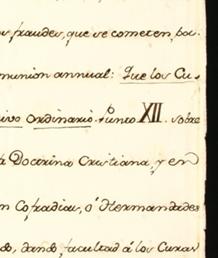 os fraudes, que se cometen, po.
omunion annual: Que los Cu-
ivo Ordinario. Punto XII. sobre
à Doctrina Cristiana, y en
n Cofradias, ò Hermandades
do, dando, facultad á los Curas